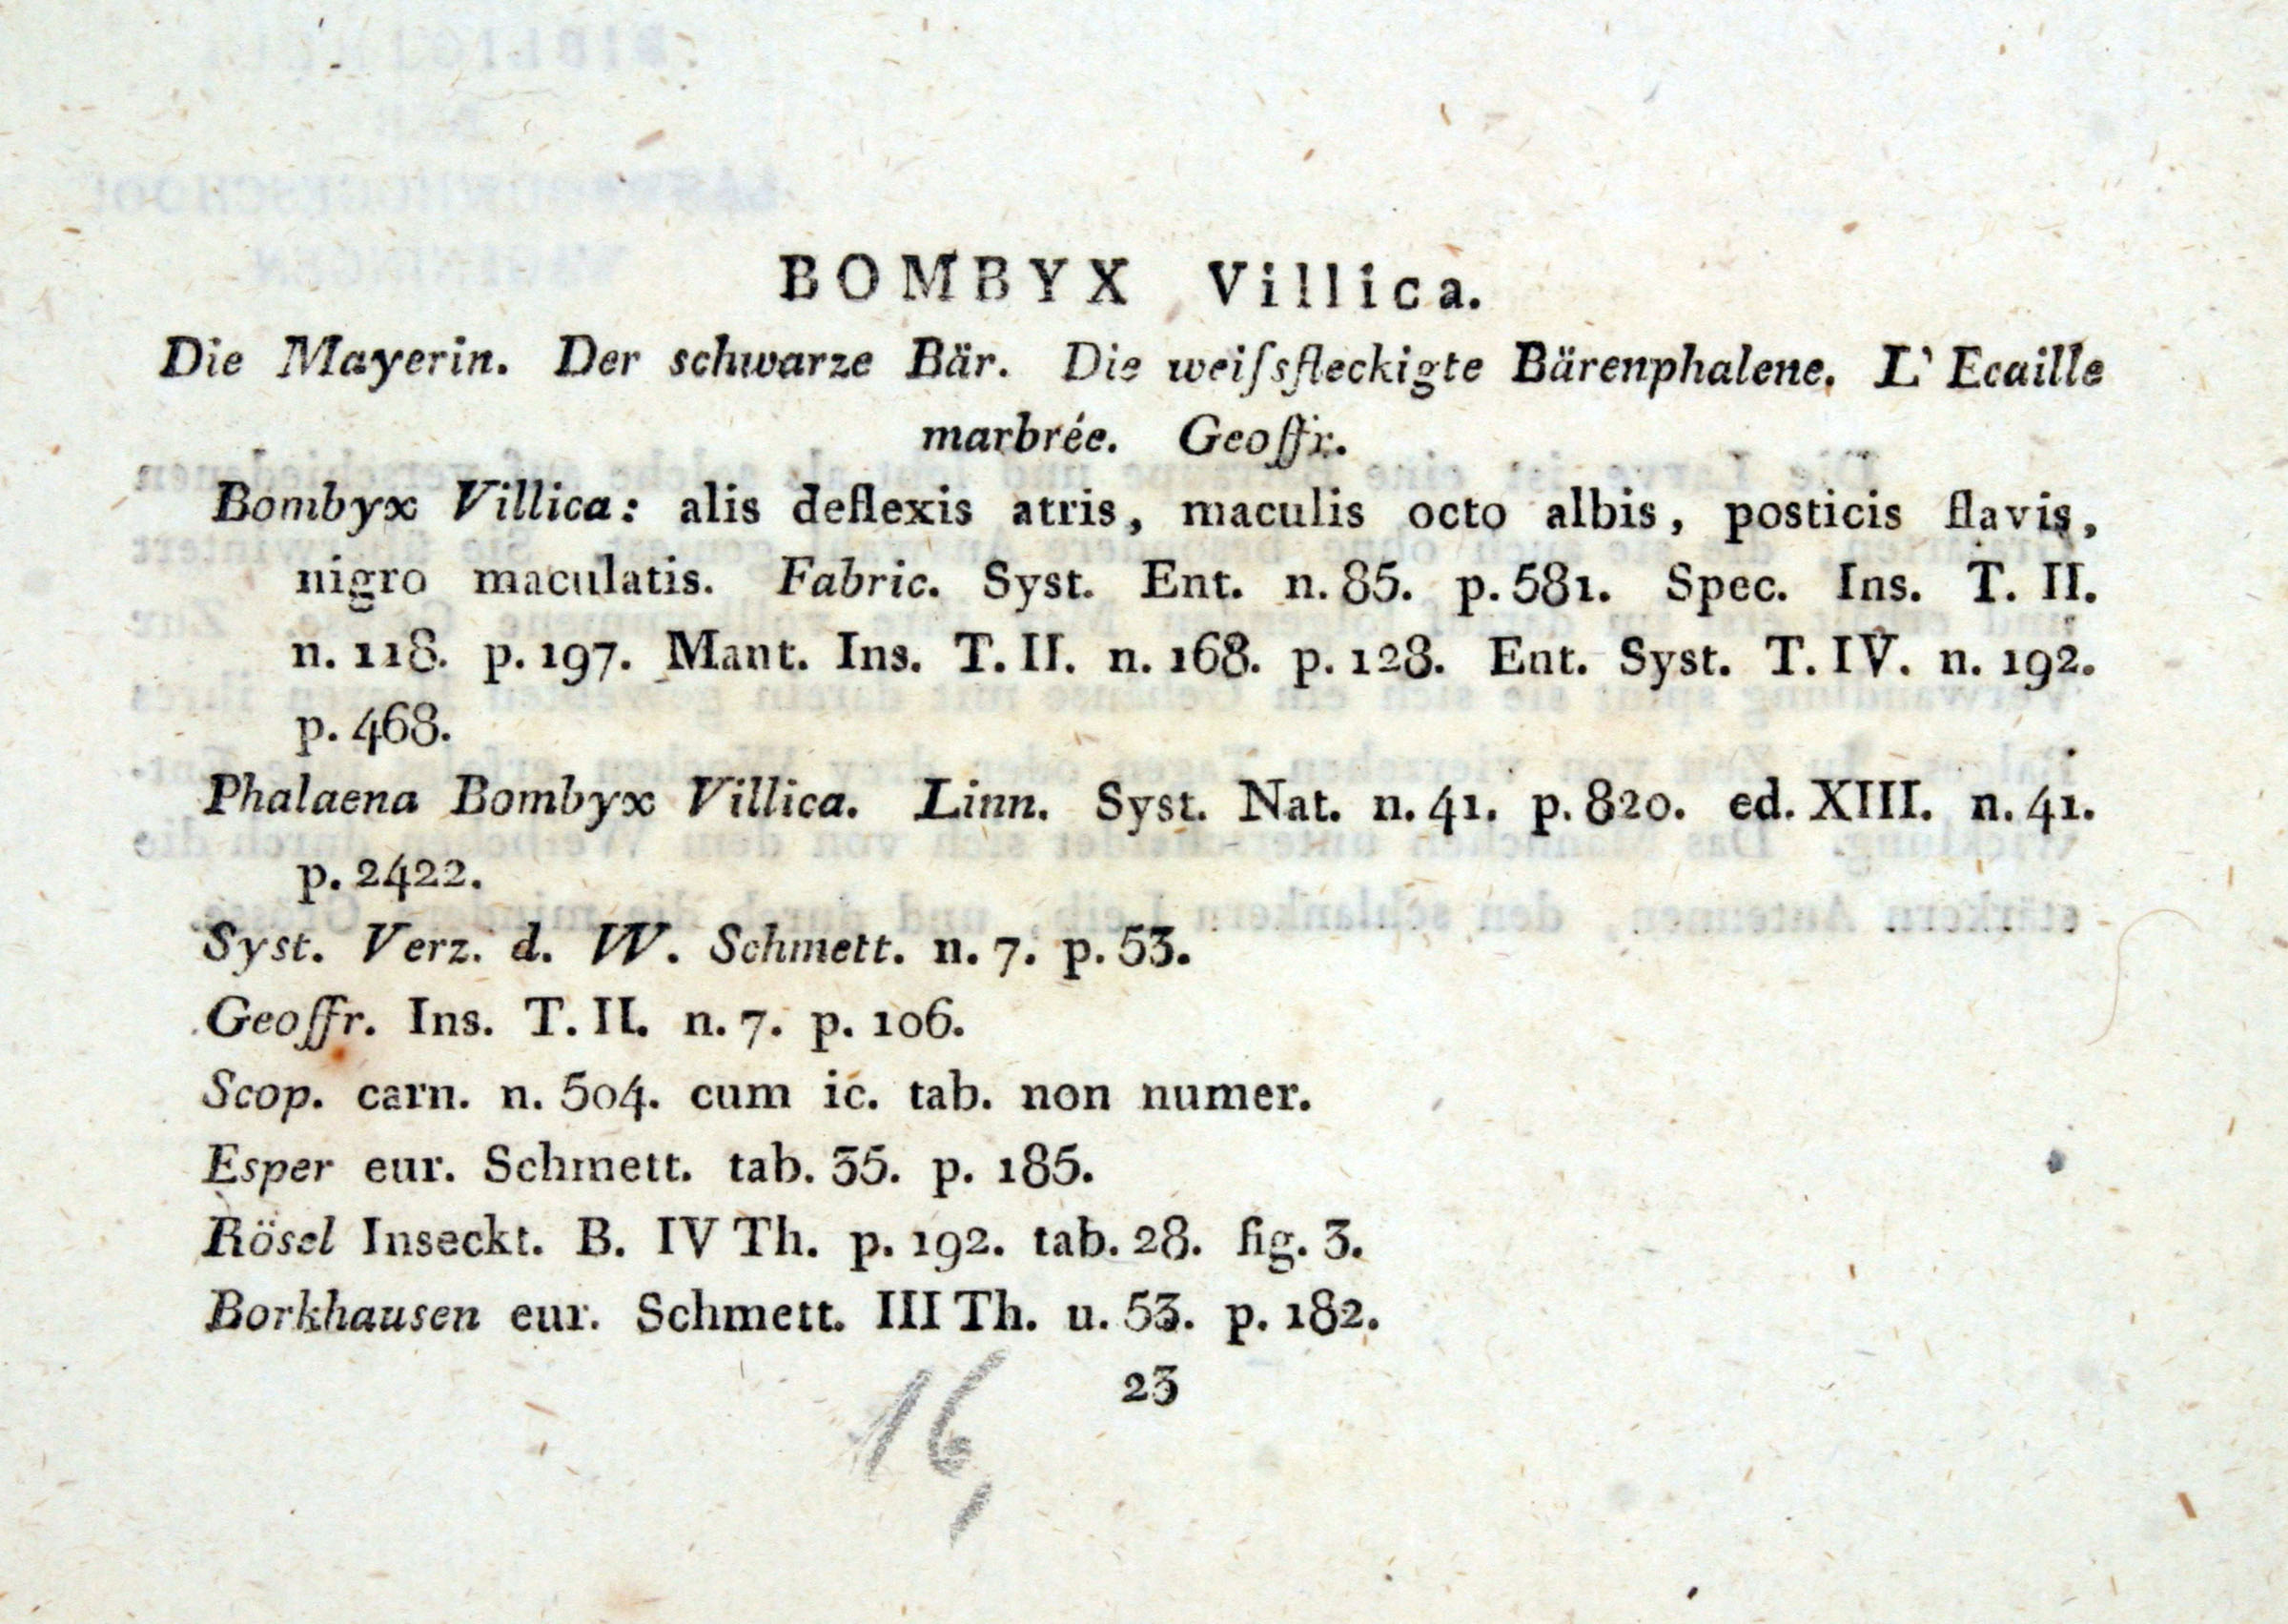 BOMBYX Villica.
Die Mayerin. Der schwarze Bär. Die weiſsfleckigte Bärenphalene. L' Ecaille
marbrée. Geoffr.
Bombyx Villica: alis deflexis atris, maculis octo albis, posticis flavis,
nigro maculatis. Fabric. Syst. Ent. n. 85. p. 581. Spec. Ins. T. II.
n. 118. p. 197. Mant. Ins. T. II. n. 168. p. 128. Ent. Syst. T. IV. n. 192.
p. 468.
Phalaena Bombyx Villica. Linn. Syst. Nat. n. 41. p. 820. ed. XIII. n. 41.
p. 2422.
Syst. Verz. d. W. Schmett. n. 7. p. 53.
Geoffr. Ins. T. II. n. 7. p. 106.
Scop. carn. n. 504. cum ic. tab. non numer.
Esper eur. Schmett. tab. 35. p. 185.
Rösel Inseckt. B. IV Th. p. 192. tab. 28. fig. 3.
Borkhausen eur. Schmett. III Th. u. 53. p. 182.
23
16,